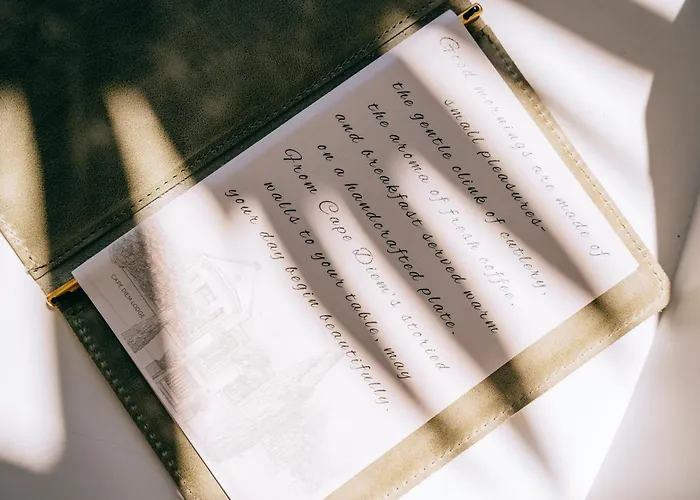 Good mornings are made of
small pleasures-
the gentle clink of cutlery,
the aroma of fresh coffee,
and breakfast served warm
on a handcrafted plate.
From Cape Diem's storied
walls to your table, may
your day begin beautifully.
CAPE DIEM LODGE